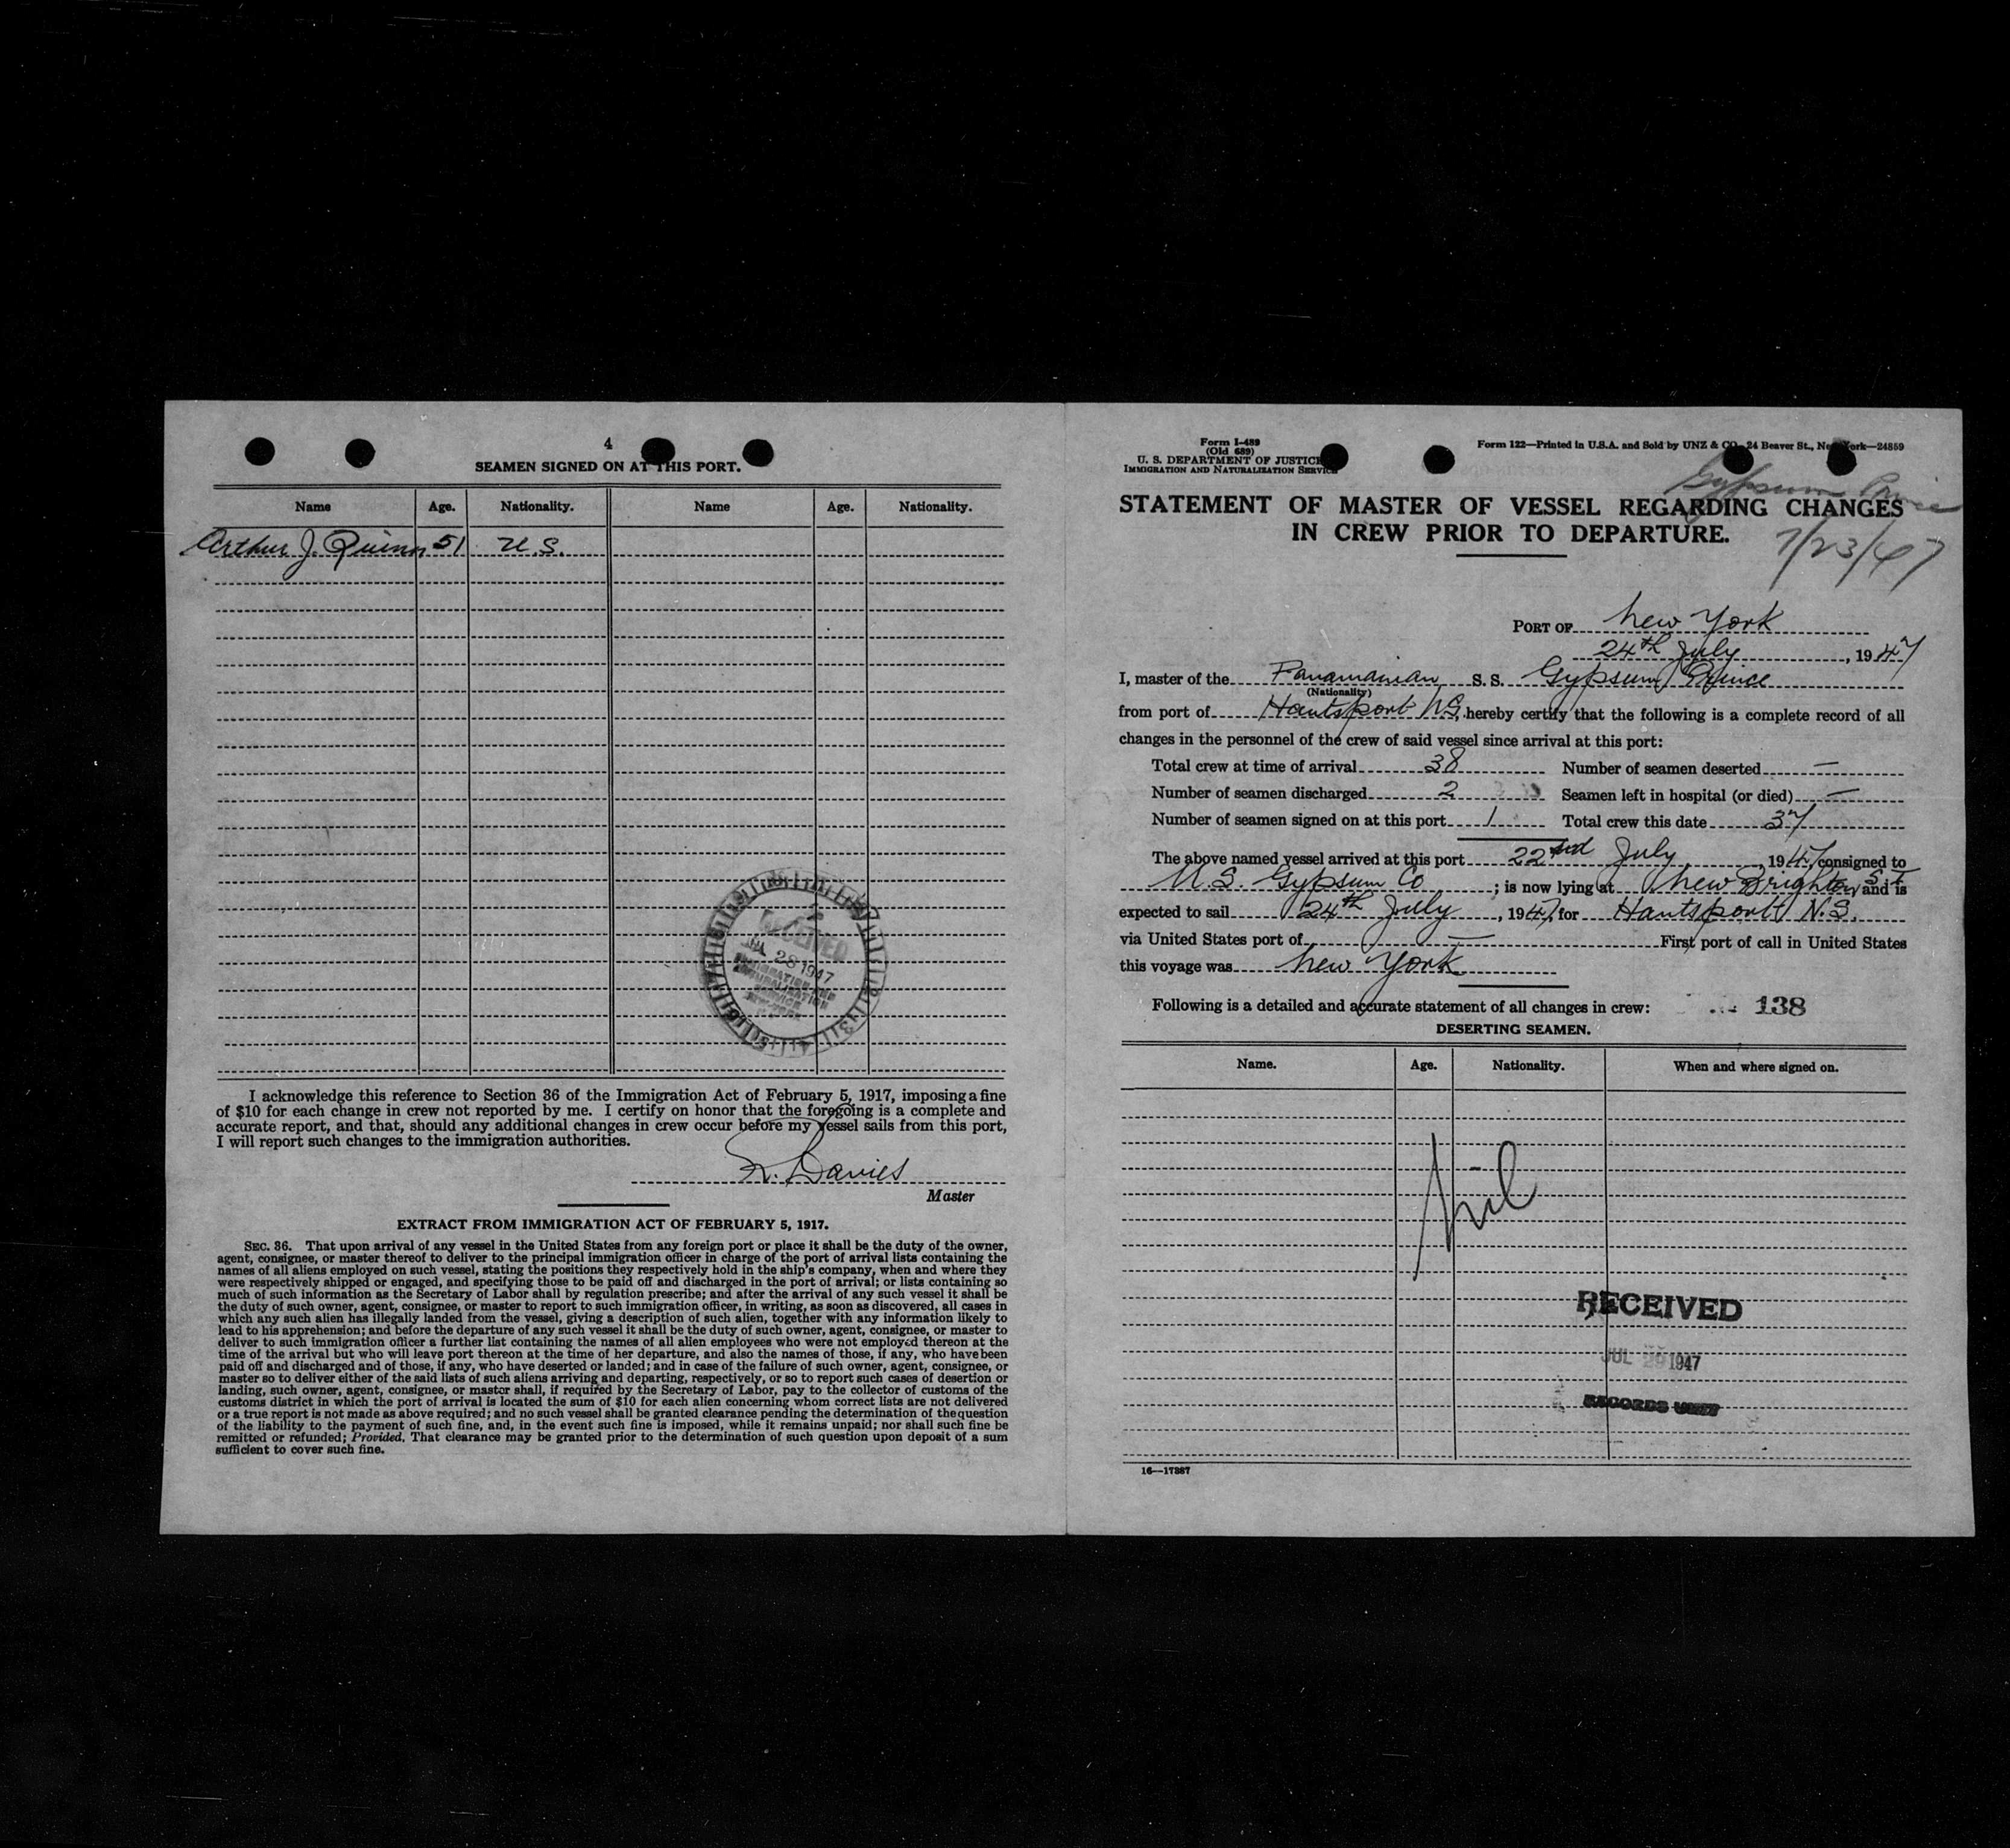 4
SEAMEN SIGNED ON AT THIS PORT.
Name Age. Nationality. Name Age. Nationality.
Arthur J. Quinn 51 U.S.
RECEIVED
JUL 28 1947
IMMIGRATION AND
NATURALIZATION
SERVICE
I acknowledge this reference to Section 36 of the Immigration Act of February 5, 1917, imposing a fine
of $10 for each change in crew not reported by me. I certify on honor that the foregoing is a complete and
accurate report, and that, should any additional changes in crew occur before my vessel sails from this port,
I will report such changes to the immigration authorities.
Davies
Master
EXTRACT FROM IMMIGRATION ACT OF FEBRUARY 5, 1917.
SEC. 36. That upon arrival of any vessel in the United States from any foreign port or place it shall be the duty of the owner,
agent, consignee, or master thereof to deliver to the principal immigration officer in charge of the port of arrival lists containing the
names of all aliens employed on such vessel, stating the positions they respectively hold in the ship's company, when and where they
were respectively shipped or engaged, and specifying those to be paid off and discharged in the port of arrival; or lists containing so
much of such information as the Secretary of Labor shall by regulation prescribe; and after the arrival of any such vessel it shall be
the duty of such owner, agent, consignee, or master to report to such immigration officer, in writing, as soon as discovered, all cases in
which any such alien has illegally landed from the vessel, giving a description of such alien, together with any information likely to
lead to his apprehension; and before the departure of any such vessel it shall be the duty of such owner, agent, consignee, or master to
deliver to such immigration officer a further list containing the names of all alien employees who were not employed thereon at the
time of the arrival but who will leave port thereon at the time of her departure, and also the names of those, if any, who have been
paid off and discharged and of those, if any, who have deserted or landed; and in case of the failure of such owner, agent, consignee, or
master so to deliver either of the said lists of such aliens arriving and departing, respectively, or so to report such cases of desertion or
landing, such owner, agent, consignee, or master shall, if required by the Secretary of Labor, pay to the collector of customs of the
customs district in which the port of arrival is located the sum of $10 for each alien concerning whom correct lists are not delivered
or a true report is not made as above required; and no such vessel shall be granted clearance pending the determination of the question
of the liability to the payment of such fine, and, in the event such fine is imposed, while it remains unpaid; nor shall such fine be
remitted or refunded; Provided, That clearance may be granted prior to the determination of such question upon deposit of a sum
sufficient to cover such fine.
Form I-489
(Old 689)
U. S. DEPARTMENT OF JUSTICE
IMMIGRATION AND NATURALIZATION SERVICE
Form 122—Printed in U.S.A. and Sold by UNZ & CO., 24 Beaver St., New York—24859
Gypsum Prince
STATEMENT OF MASTER OF VESSEL REGARDING CHANGES
IN CREW PRIOR TO DEPARTURE.
7/23/47
PORT OF New York
24th July, 1947
I, master of the Panamanian S. S. Gypsum Prince
(Nationality)
from port of Hantsport N.S., hereby certify that the following is a complete record of all
changes in the personnel of the crew of said vessel since arrival at this port:
Total crew at time of arrival 38 Number of seamen deserted —
Number of seamen discharged 2 Seamen left in hospital (or died) —
Number of seamen signed on at this port 1 Total crew this date 37
The above named vessel arrived at this port 22nd July, 1947, consigned to
U.S. Gypsum Co; is now lying at New Brighton S I and is
expected to sail 24th July, 1947, for Hantsport N.S.
via United States port of — First port of call in United States
this voyage was New York
Following is a detailed and accurate statement of all changes in crew: 138
DESERTING SEAMEN.
Name. Age. Nationality. When and where signed on.
Nil
RECEIVED
JUL 29 1947
RECORDS UNIT
16—17387